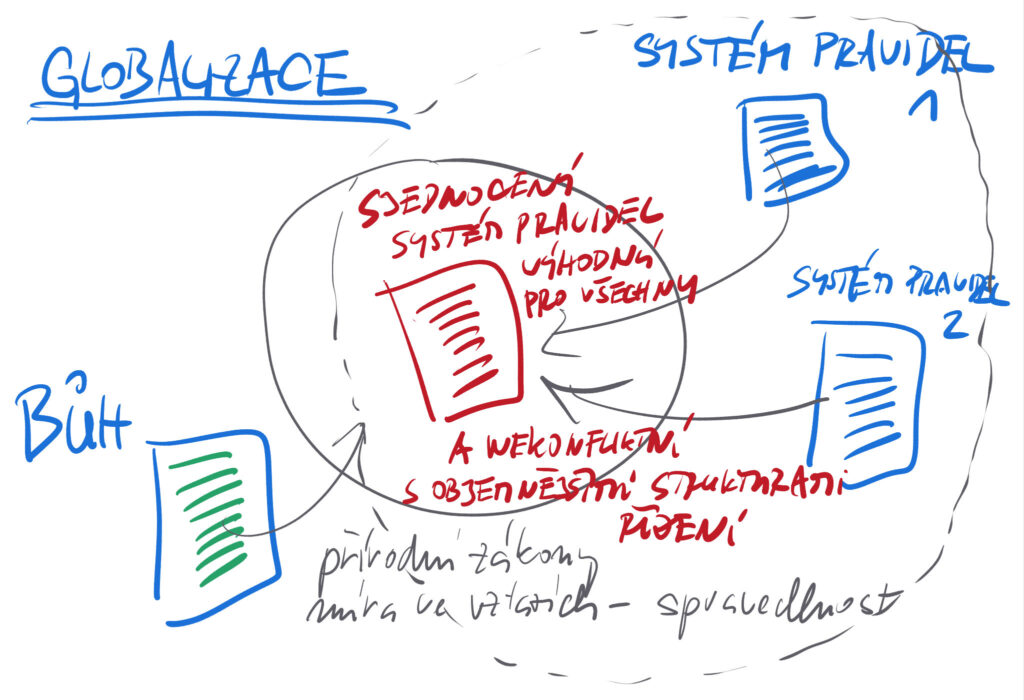 GLOBALIZACE
SYSTÉM PRAVIDEL
1
SJEDNOCENÝ
SYSTÉM PRAVIDEL
VÝHODNÝ
PRO VŠECHNY
SYSTÉM PRAVIDEL
2
BŮH
A NEKONFLIKTNÍ
S OBJEMNĚJŠÍMI STRUKTURAMI
ŘÍZENÍ
přírodní zákony
míra ve vztazích – spravedlnost